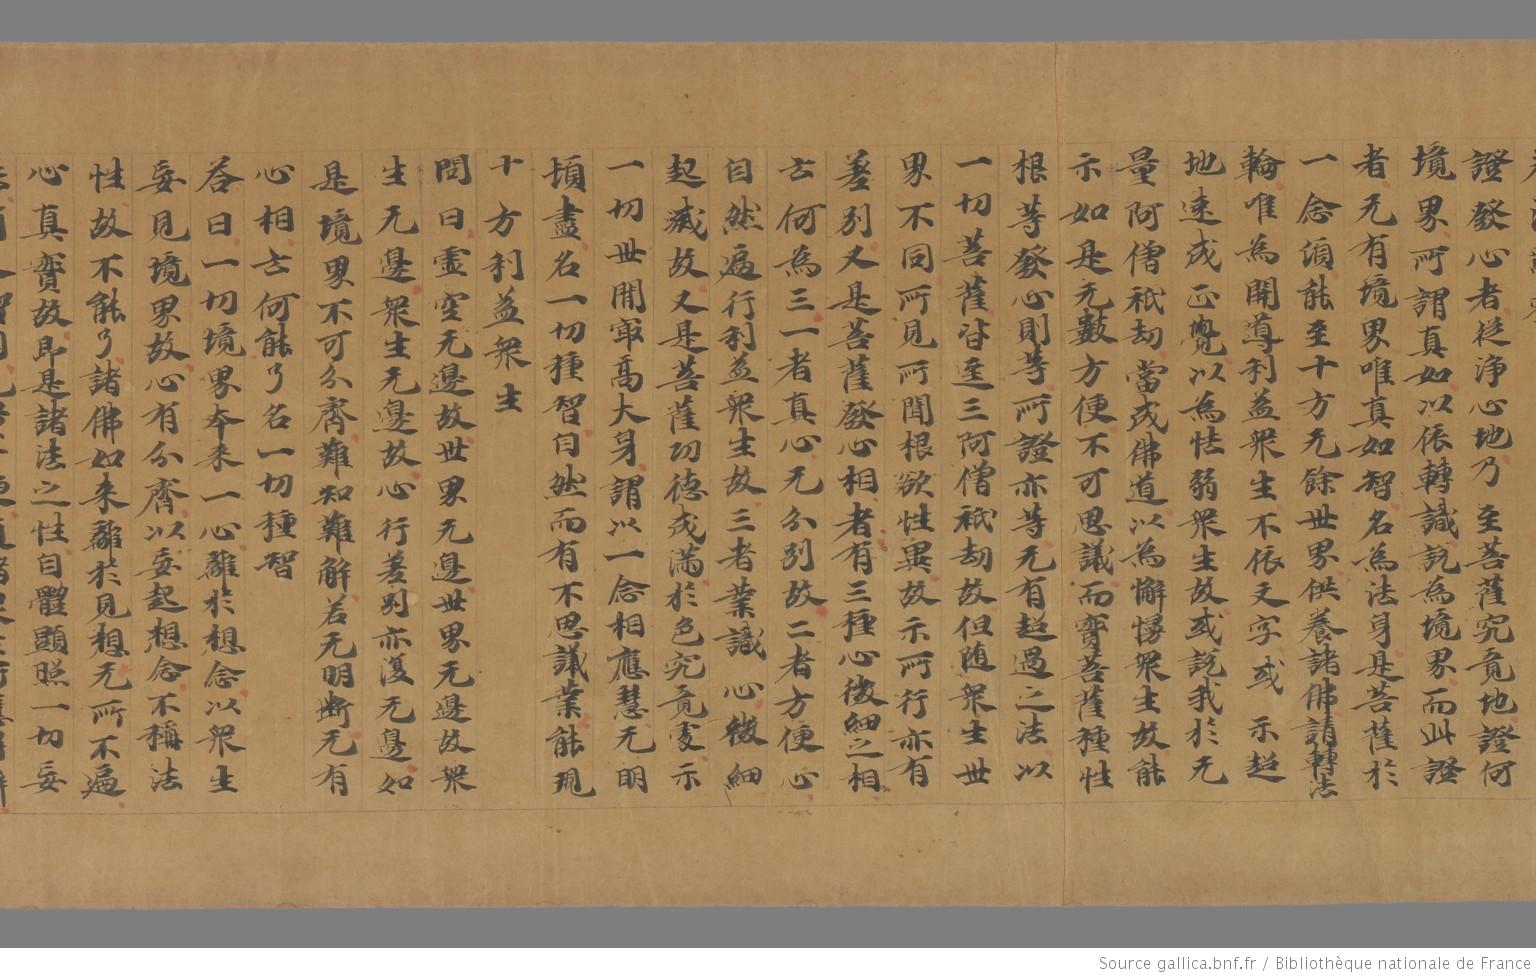 證發心者從淨心地乃至菩薩究竟地證何
境界所謂真如以依轉識說為境界而此證
者无有境界唯真如智名為法身是菩薩於
一念頃能至十方无餘世界供養諸佛請轉法
輪唯為開導利益眾生不依文字或示超
地速成正覺以為怯弱眾生故或說我於无
量阿僧祇劫當成佛道以為懈慢眾生故能
示如是无數方便不可思議而實菩薩種性
根等發心則等所證亦等无有超過之法以
一切菩薩皆逕三阿僧祇劫故但随眾生世
界不同所見所聞根欲性異故示所行亦有
差別又是菩薩發心相者有三種心微細之相
云何為三一者真心无分別故二者方便心
自然遍行利益眾生故三者業識心微細
起滅故又是菩薩功德成滿於色究竟處示
一切世間㝡高大身謂以一念相應慧无明
頓盡名一切種智自然而有不思議業能現
十方利益眾生
問曰虛空无邊故世界无邊世界无邊故眾
生无邊眾生无邊故心行差別亦復无邊如
是境界不可分齊難知難解若无明断无有
心相云何能了名一切種智
荅曰一切境界本来一心離於想念以眾生
妄見境界故心有分齊以妄起想念不稱法
性故不能了諸佛如来離於見想无所不遍
心真實故即是諸法之性自體顯照一切妄
Source gallica.bnf.fr / Bibliothèque nationale de France